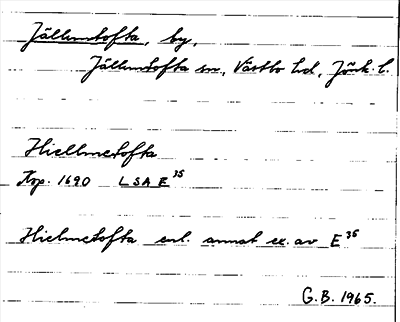 Jälluntofta, by,
Jälluntofta sn, Västbo hd, Jönk. l.
Hiellmetofta
Kop. 1690 LSA E 35
Hielmetofta enl. annat ex. av E 36
G.B. 1965.